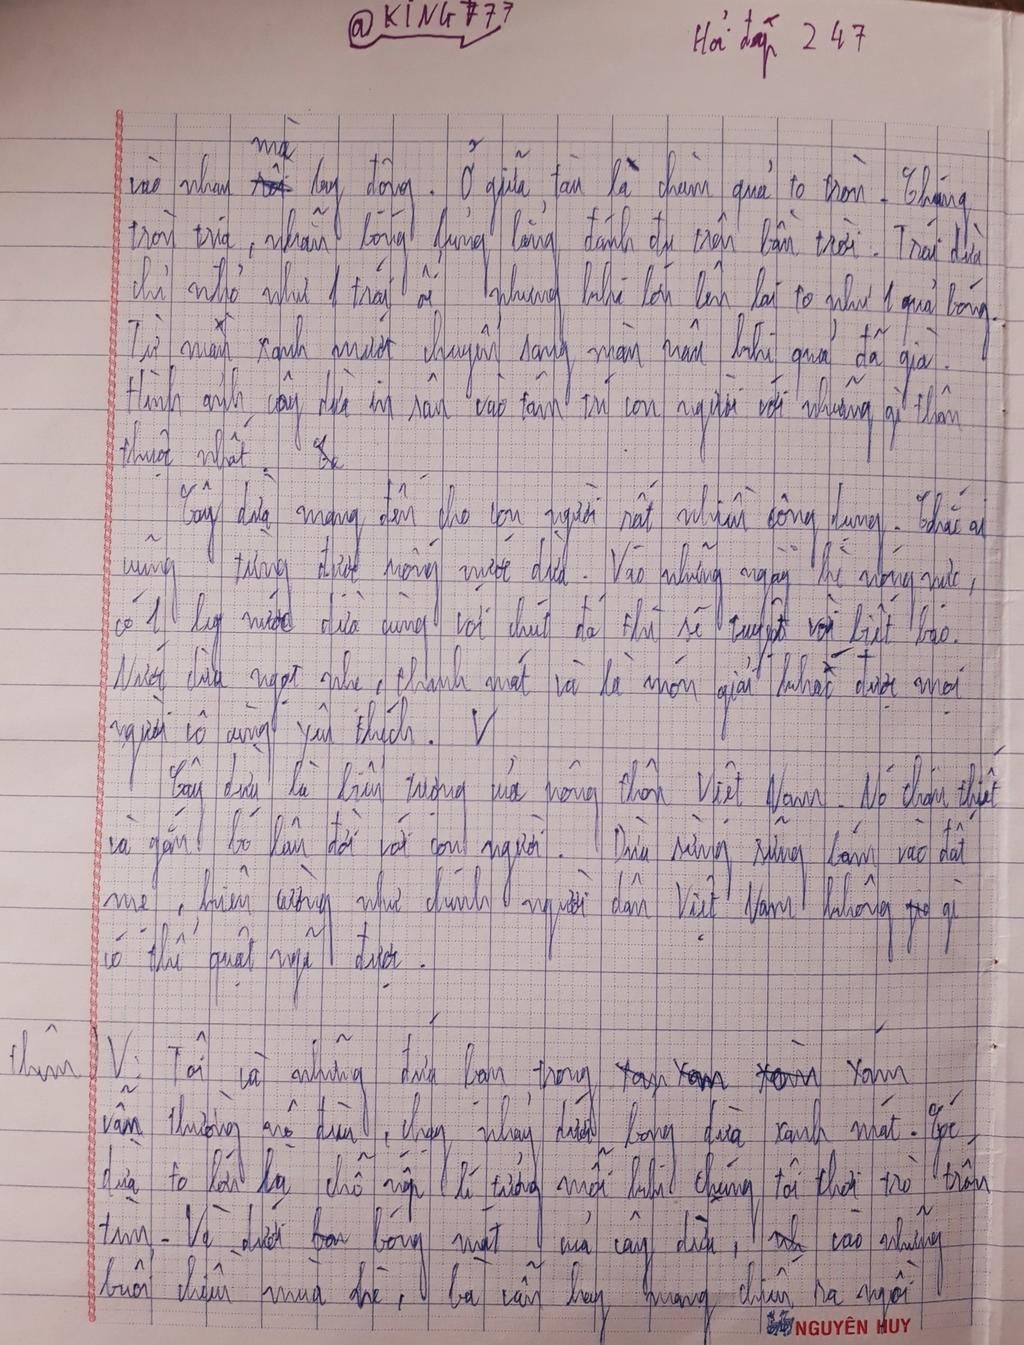 @KING777
Hỏi đáp 247
mà
vào nhau lay động. Ở giữa tàu là chùm quả to tròn. Chúng
tròn trịa, nhẵn bóng lủng lẳng đánh đu trên bầu trời. Trái dừa
chỉ nhỏ như 1 trái ổi nhưng khi lớn lên lại to như 1 quả bóng.
Từ màu xanh mướt chuyển sang màu nâu khi quả đã già.
Hình ảnh cây dừa in sâu vào tâm trí con người với những gì thân
thuộc nhất.
Cây dừa mang đến cho con người rất nhiều công dụng. Chắc ai
cũng từng được uống nước dừa. Vào những ngày hè nóng nực,
có 1 ly nước dừa cùng với chút đá thì sẽ tuyệt vời biết bao.
Nước dừa ngọt nhẹ, thanh mát và là món giải khát được mọi
người vô cùng yêu thích. V
Cây dừa là biểu tượng của nông thôn Việt Nam. Nó thân thiết
và gắn bó lâu đời với con người. Dừa sừng sững bám vào đất
mẹ, kiên cường như chính người dân Việt Nam không gì
có thể quật ngã được.
thêm V: Tôi và những đứa bạn trong xóm
vẫn thường nô đùa, chạy nhảy dưới bóng dừa xanh mát. Gốc
dừa to lớn là chỗ nấp lí tưởng mỗi khi chúng tôi chơi trò trốn
tìm. Và dưới bóng mát của cây dừa, vào những
buổi chiều mùa hè, bà vẫn hay mang chiếu ra ngồi
NGUYÊN HUY